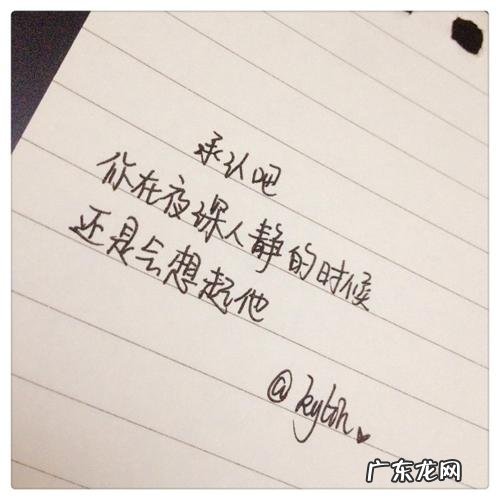 承认吧
你在夜深人静的时候
还是会想起他
@kylin
广东龙网